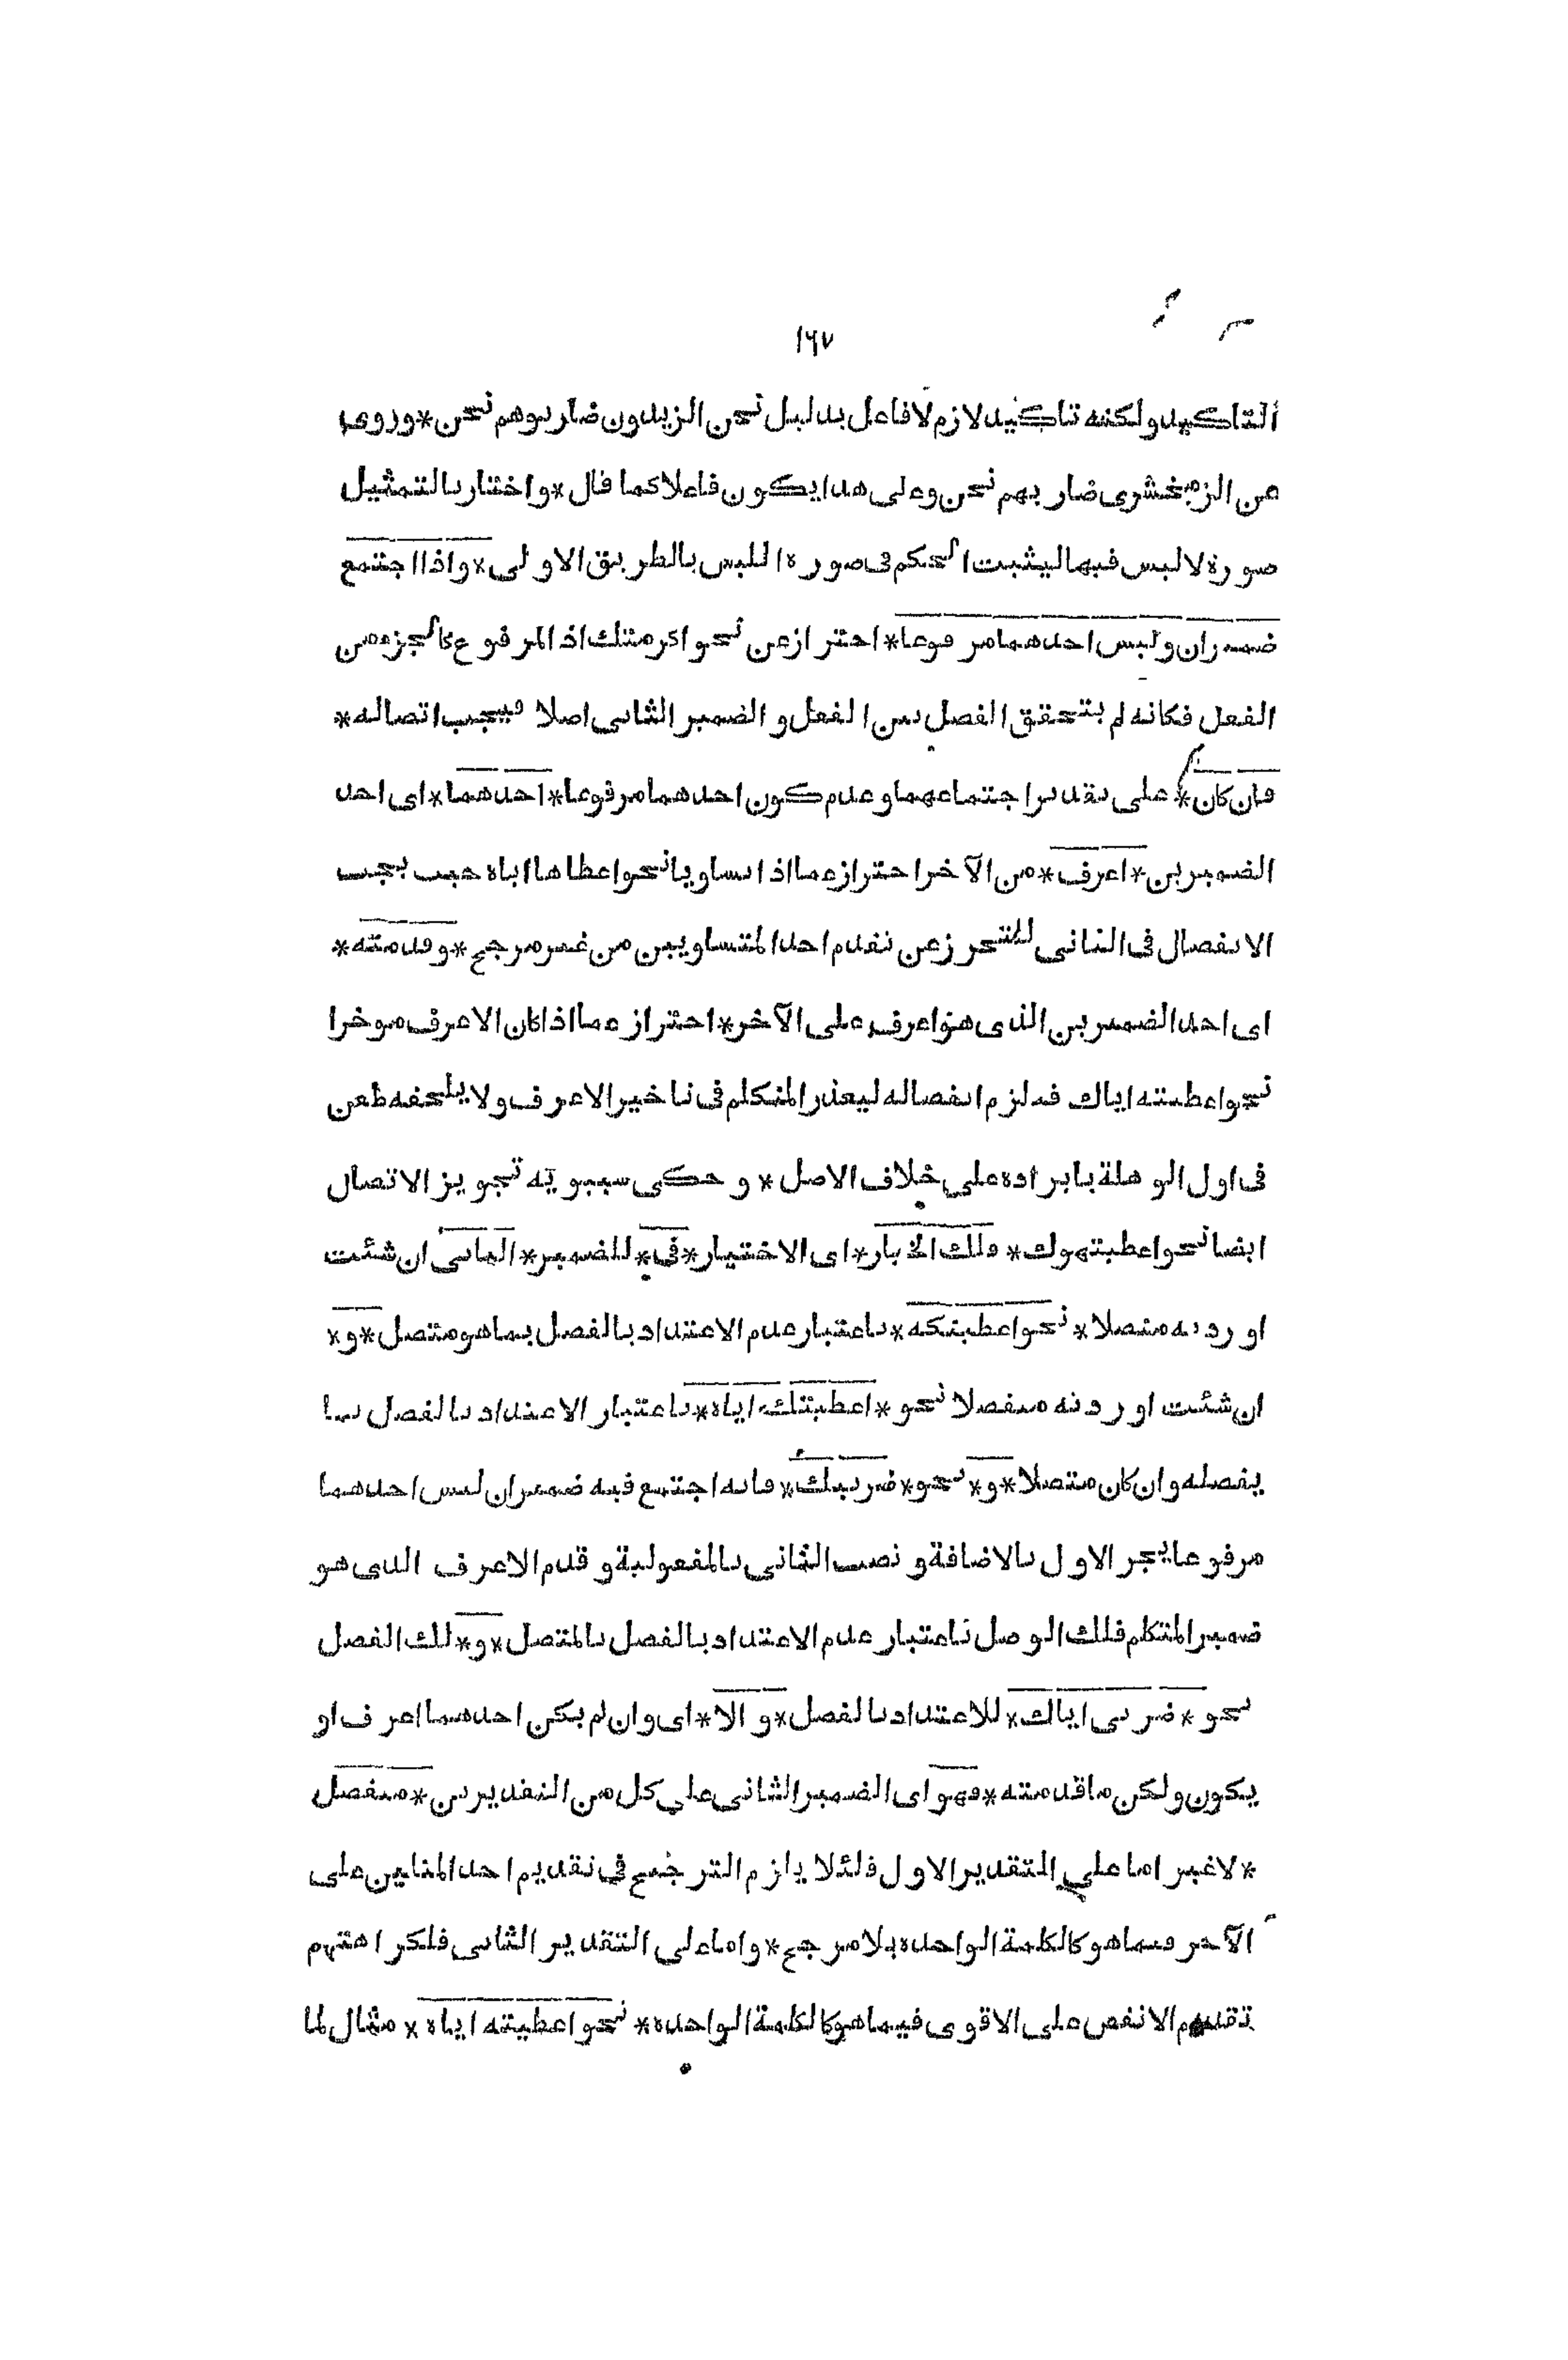 ١٦٧
التاكيد ولكنه تاكيد لازم لا فاعل بدليل نحن الزيدون ضاربوهم نحن * وروى
عن الزمخشرى ضاربهم نحن وعلى هذا يكون فاعلا كما قال * واختار بالتمثيل
صورة لا لبس فيها ليثبت الحكم فى صورة اللبس بالطريق الاولى * واذا اجتمع
ضميران وليس احدهما مرفوعا * احتراز عن نحو اكرمتك اذ المرفوع كالجزء من
الفعل فكانه لم يتحقق الفصل بين الفعل و الضمير الثانى اصلا فيجب اتصاله *
فان كان * على تقدير اجتماعهما وعدم كون احدهما مرفوعا * احدهما * اى احد
الضميرين * اعرف * من الآخر احتراز عما اذا تساويا نحو اعطاها اياه حيث يجب
الانفصال فى الثانى للتحرز عن تقدم احد المتساويين من غير مرجح * وقدمته *
اى احد الضميرين الذى هو اعرف على الآخر * احتراز عما اذا كان الاعرف موخرا
نحو اعطيته اياك فيلزم انفصاله ليعذر المتكلم فى تاخير الاعرف ولا يلحقه طعن
فى اول الوهلة بايراده على خلاف الاصل * و حكى سيبويه تجويز الاتصال
ايضا نحو اعطيتهوك * فلك الخيار * اى الاختيار * فى * للضمير * الثانى ان شئت
اوردته متصلا * نحو اعطيتكه * باعتبار عدم الاعتداد بالفصل بما هو متصل * و *
ان شئت اوردته منفصلا نحو * اعطيتك اياه * باعتبار الاعتداد بالفصل بما
يفصله وان كان متصلا * و * نحو * ضربيك * فانه اجتمع فيه ضميران ليس احدهما
مرفوعا يجر الاول بالاضافة و نصب الثانى بالمفعولية و قدم الاعرف الذى هو
ضمير المتكلم فلك الوصل باعتبار عدم الاعتداد بالفصل بالمتصل * و * لك الفصل
نحو * ضربى اياك * للاعتداد بالفصل * و الا * اى وان لم يكن احدهما اعرف او
يكون ولكن ما قدمته * فهو اى الضمير الثانى على كل من التقديرين * منفصل
* لا غير اما على التقدير الاول فلئلا يلزم الترجيح فى تقديم احد المثلين على
الآخر فيما هو كالكلمة الواحدة بلا مرجح * واما على التقدير الثانى فلكراهتهم
تقديم الانقص على الاقوى فيما هو كالكلمة الواحدة * نحو اعطيته اياه * مثال لما